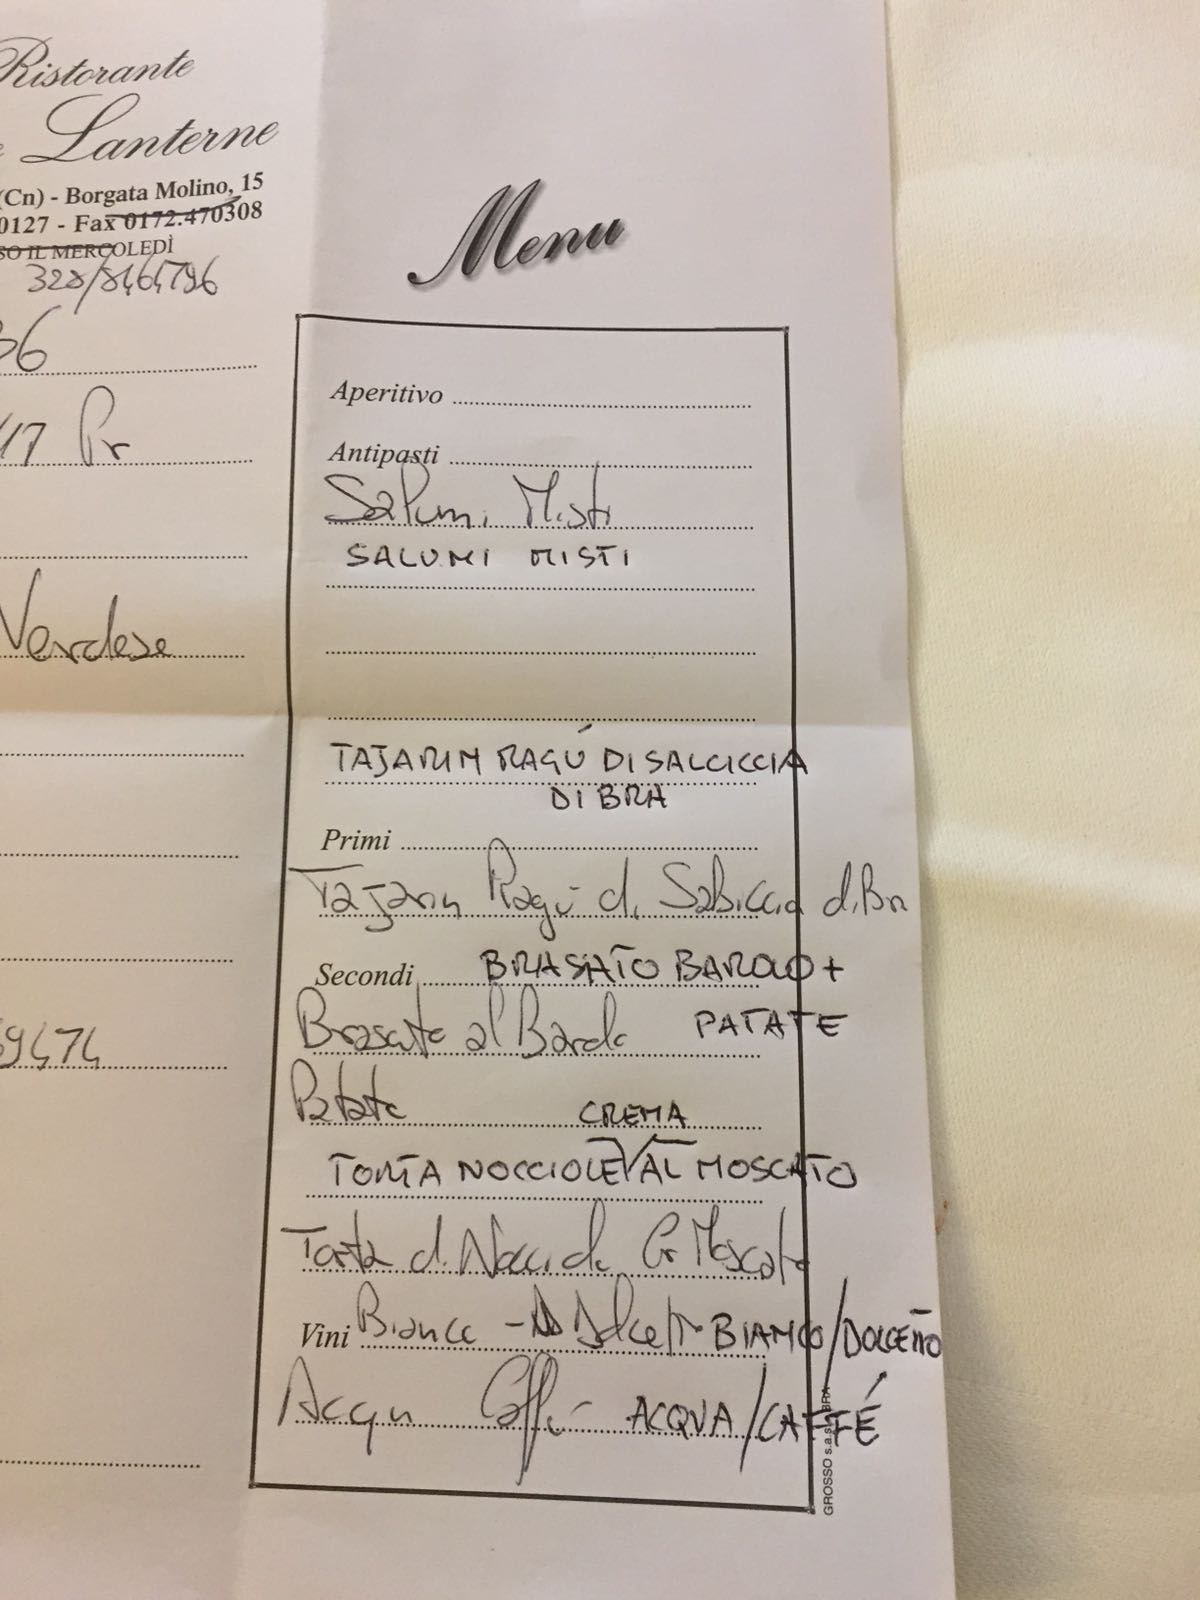 Ristorante
Lanterne
(Cn) - Borgata Molino, 15
0127 - Fax 0172.470308
SO IL MERCOLEDÌ
328/8464796
36
/17 Pr
Verdese
69474
Menu
Aperitivo
Antipasti
Salumi Misti
SALUMI MISTI
TAJARIN RAGÚ DI SALCICCIA
DI BRA
Primi
Tajarin Ragù di Salsiccia di Bra
Secondi BRASATO BAROLO +
Brasato al Barolo PATATE
Patate CREMA
TORTA NOCCIOLE AL MOSCATO
Torta di Nocciole Cr Moscato
Vini Bianco - Dolcetto BIANCO/DOLCETTO
Acqua Caffè ACQUA/CAFFÉ
GROSSO s.a.s. - BRA